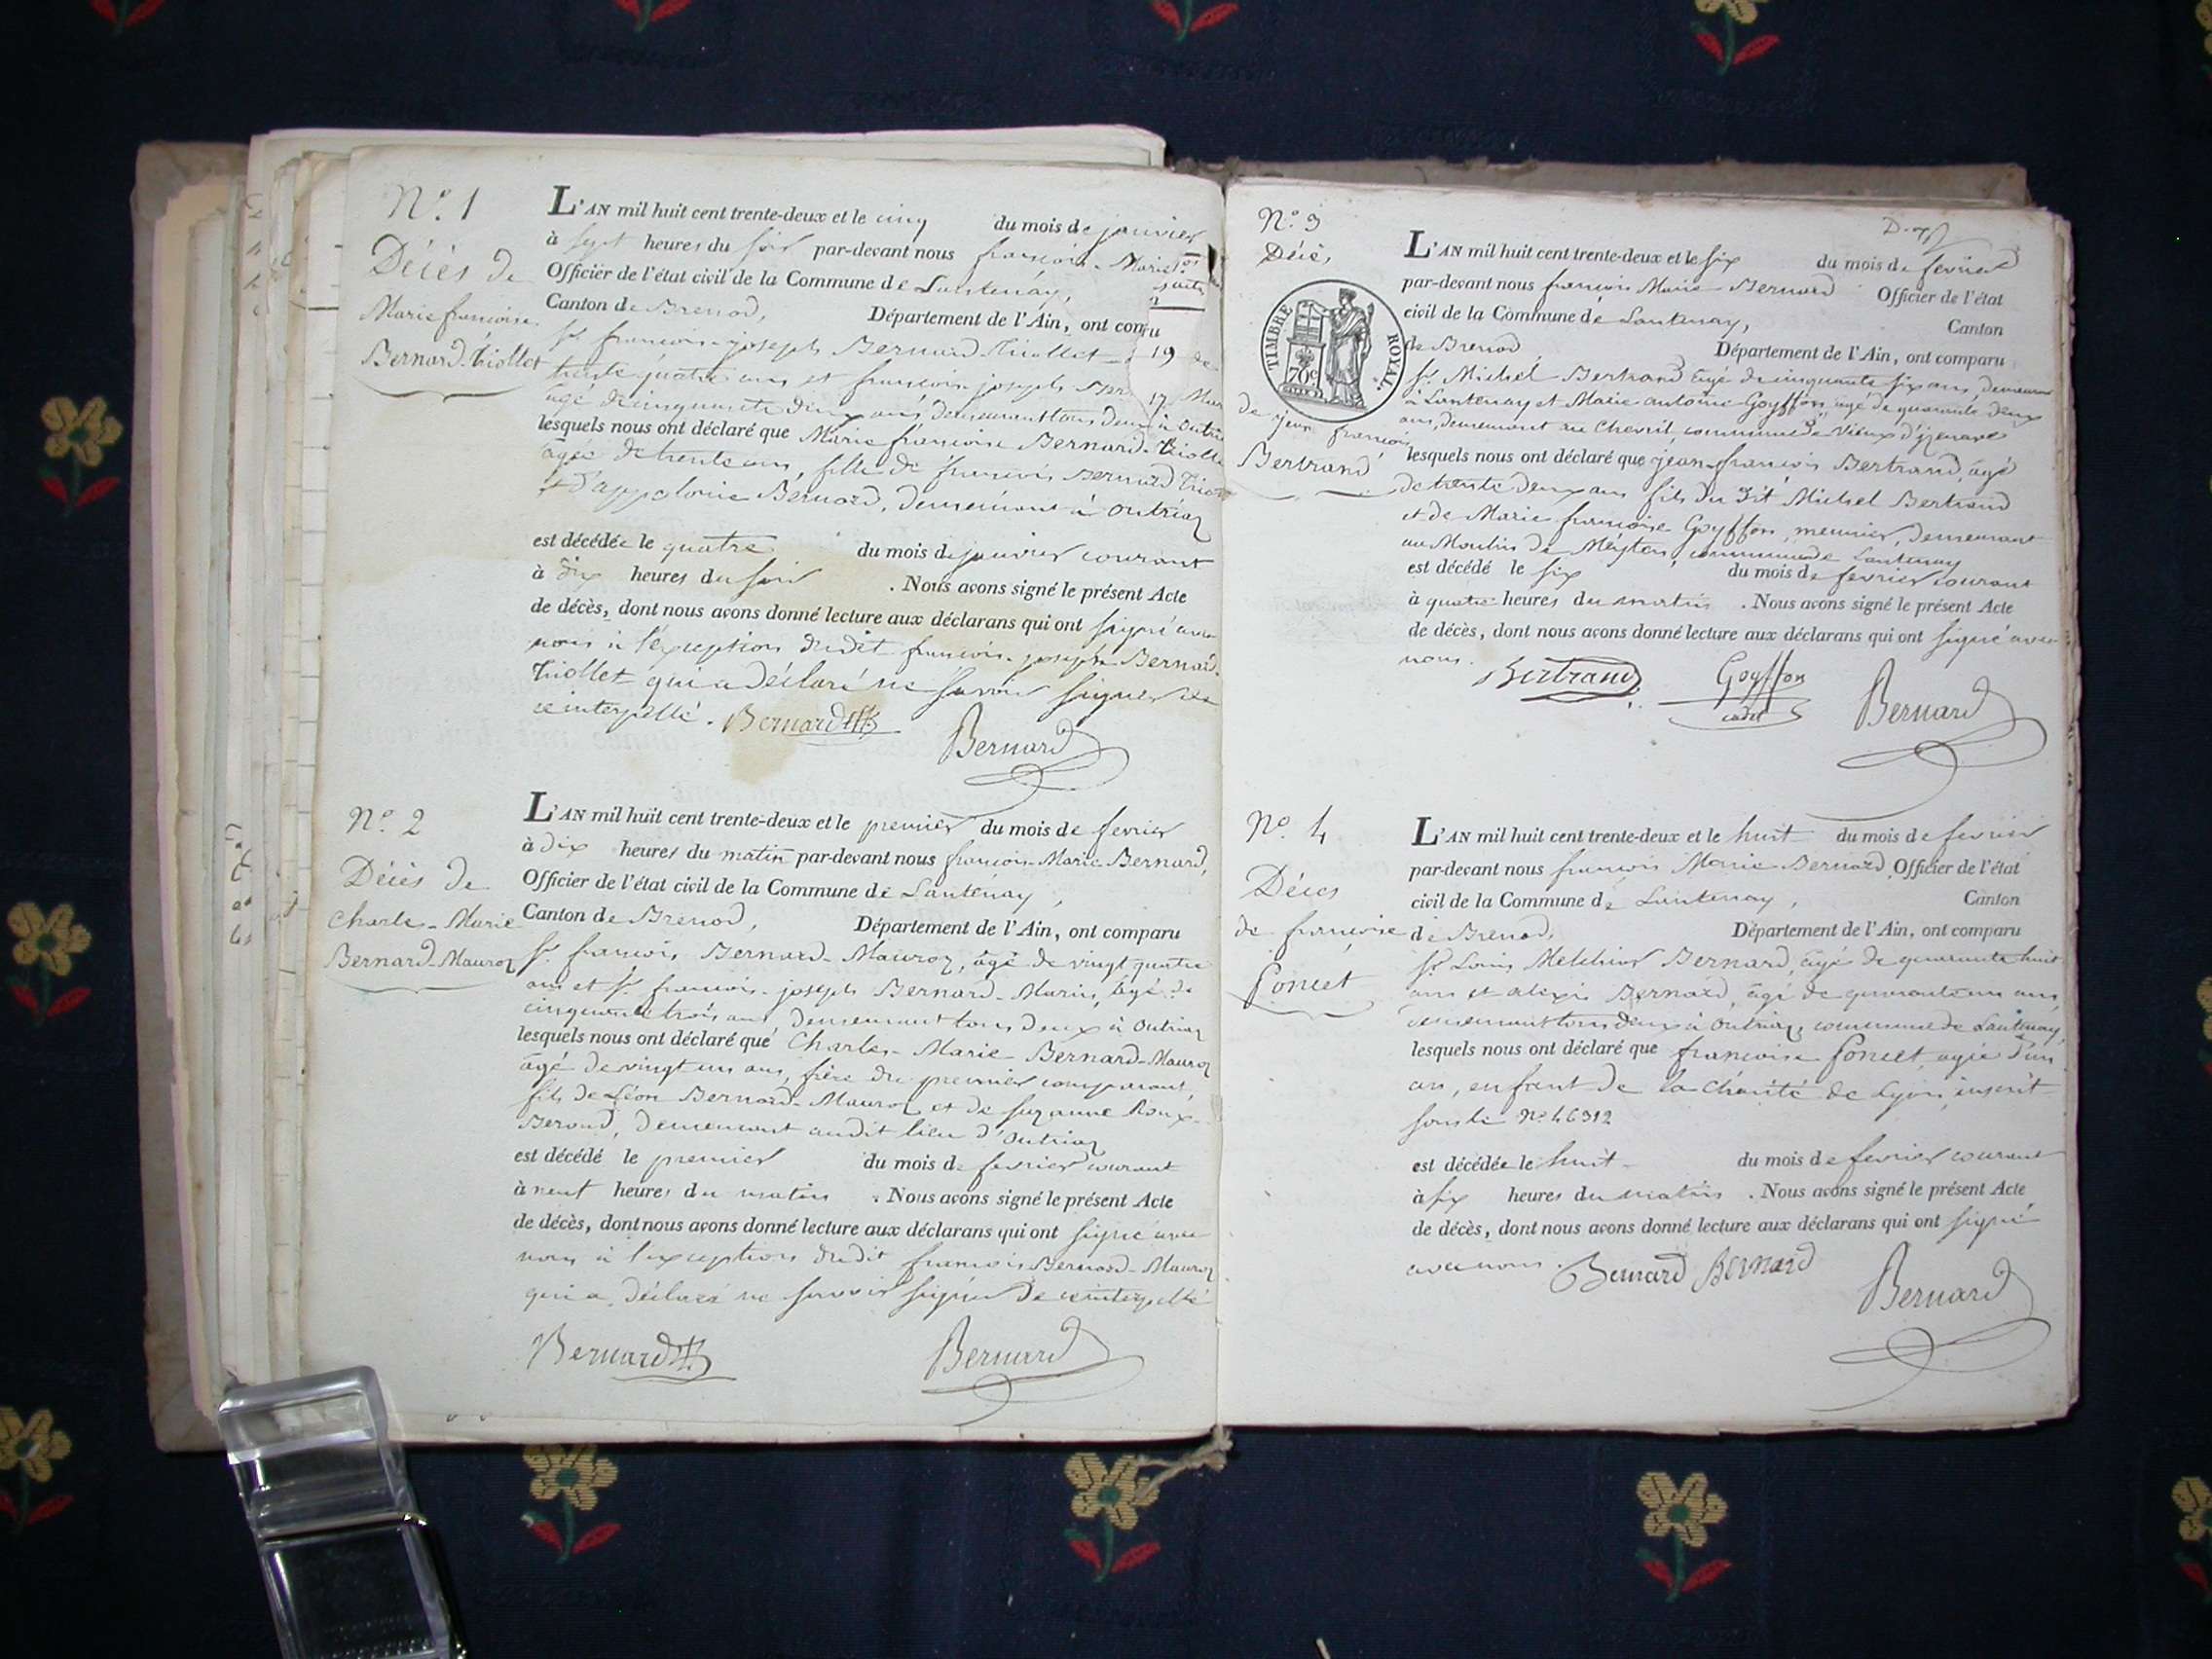 N.° 1
Décès de
Marie françoise
Bernard-Triollet
L'AN mil huit cent trente-deux et le cinq du mois de janvier
à sept heures du soir par-devant nous françois-Marie
Officier de l'état civil de la Commune de Lantenay,
Canton de Brenod, Département de l'Ain, ont
sr françois-joseph Bernard-Triollet
trente quatre ans et françois joseph
âgé de cinquante deux ans demeurant tous deux à
lesquels nous ont déclaré que Marie françoise Bernard-
âgée de trente ans, fille de françois Bernard
et d'appolonie Bernard, demeurant à outriaz
est décédée le quatre du mois de janvier courant
à dix heures du soir . Nous avons signé le présent Acte
de décès, dont nous avons donné lecture aux déclarans qui ont signé avec
nous à l'exception dudit françois-joseph Bernard-
Triollet qui a déclaré ne savoir signer de
ce interpellé. Bernard
Bernard
19
17
N.° 2
Décès de
Charle-Marie
Bernard-Mauroz
L'AN mil huit cent trente-deux et le premier du mois de fevrier
à dix heures du matin par-devant nous francois-Marie Bernard,
Officier de l'état civil de la Commune de Lantenay,
Canton de Brenod, Département de l'Ain, ont comparu
sr françois Bernard-Mauroz, âgé de vingt quatre
ans et sr francois-joseph Bernard-Marin, âgé de
cinquante trois ans demeurant tous deux à outriaz
lesquels nous ont déclaré que Charles-Marie-Bernard-Mauroz
âgé de vingt un ans, frère du premier comparant,
fils de Léon Bernard-Mauroz et de suzanne Roux-
Beroud, demeurant audit lieu d'outriaz
est décédé le premier du mois de fevrier courant
à neuf heures du matin . Nous avons signé le présent Acte
de décès, dont nous avons donné lecture aux déclarans qui ont signé avec
nous à l'exception dudit françois Bernard-Mauroz
qui a déclaré ne savoir signer de ce interpellé
Bernard Bernard
N.° 3
Décès
TIMBRE ROYAL.
70c
de jean françois
Bertrand
L'AN mil huit cent trente-deux et le six du mois de fevrier
par-devant nous francois Marie Bernard Officier de l'état
civil de la Commune de Lantenay, Canton
de Brenod Département de l'Ain, ont comparu
sr Michel Bertrand âgé de cinquante six ans, demeurant
à Lantenay et Marie antoine Goyffon, agé de quarante deux
ans, demeurant au Chevril, commune de Vieux d'izenave
lesquels nous ont déclaré que jean-francois Bertrand, âgé
de trente deux ans fils du dit Michel Bertrand
et de Marie françoise Goyffon, meunier, demeurant
au Moulin de commune de Lantenay
est décédé le six du mois de fevrier courant
à quatre heures du matin . Nous avons signé le présent Acte
de décès, dont nous avons donné lecture aux déclarans qui ont signé avec
nous. Bertrand Goyffon cadet Bernard
N.° 4
Décès
de françoise
Poncet
L'AN mil huit cent trente-deux et le huit du mois de fevrier
par-devant nous françois Marie Bernard, Officier de l'état
civil de la Commune de Lantenay, Canton
de Brenod, Département de l'Ain, ont comparu
sr Louis Melchior Bernard, âgé de quarante huit
ans et alexis Bernard, âgé de quarante un ans,
demeurant tous deux à outriaz, commune de Lantenay,
lesquels nous ont déclaré que françoise Poncet, agée d'un
an, enfant de la charité de Lyon, inscrit
sous le N° 46312
est décédée le huit du mois de fevrier courant
à six heures du matin . Nous avons signé le présent Acte
de décès, dont nous avons donné lecture aux déclarans qui ont signé
avec nous. Bernard Bernard Bernard